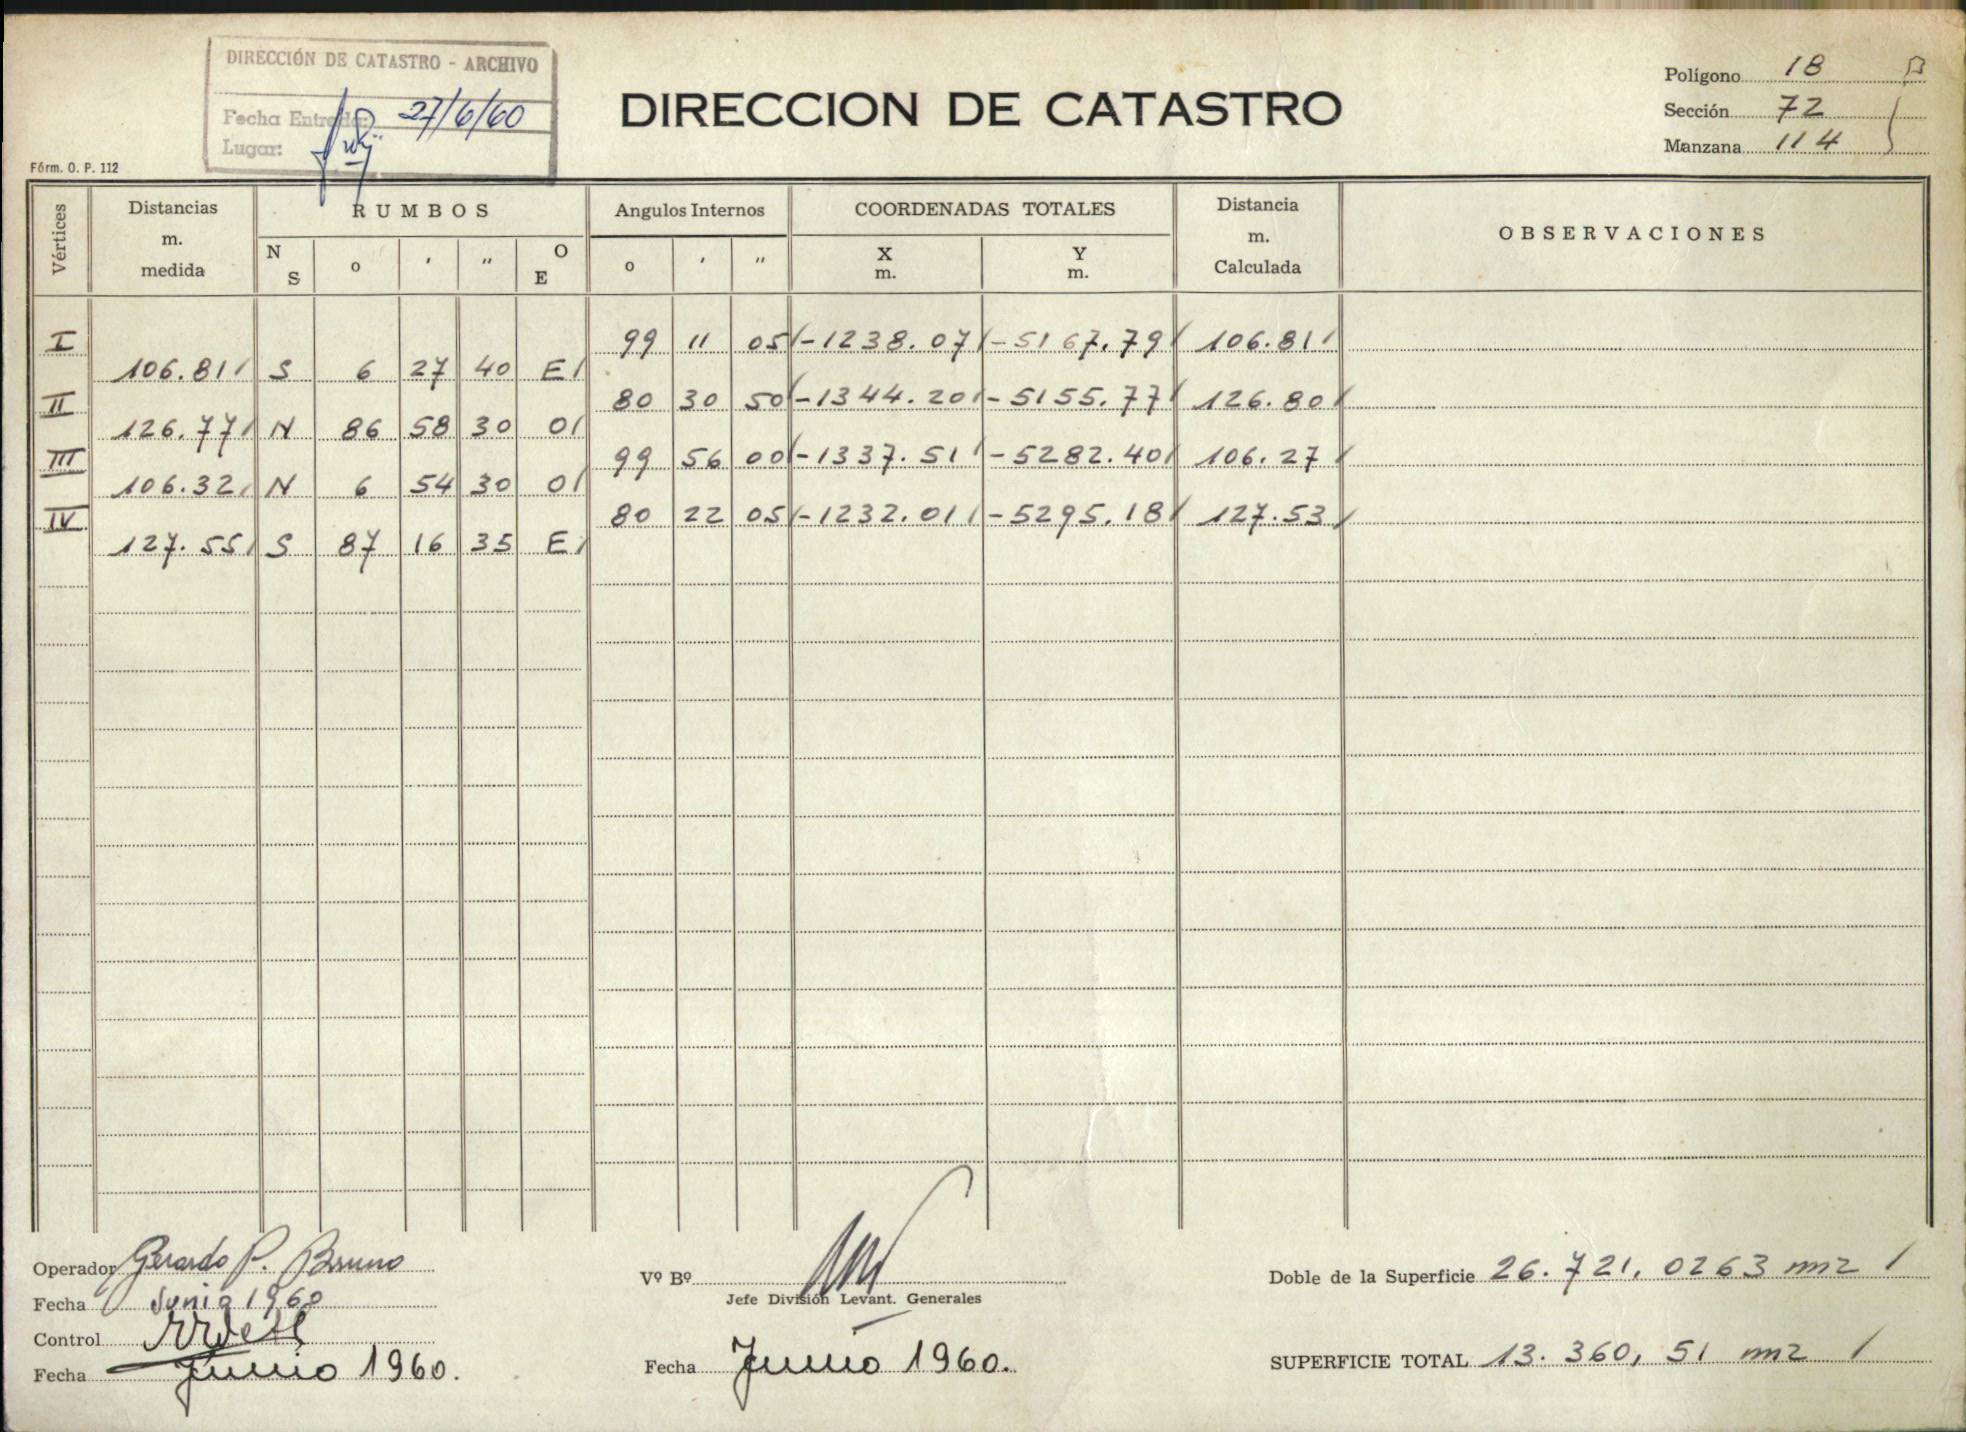 DIRECCIÓN DE CATASTRO - ARCHIVO
Fecha Entrada: 27/6/60
Lugar:
DIRECCION DE CATASTRO
Polígono 18 B
Sección 72
Manzana 114
Fórm. O. P. 112
Vértices
Distancias m. medida
RUMBOS
N S o ' " O E
Angulos Internos
o ' "
COORDENADAS TOTALES
X m. Y m.
Distancia m. Calculada
OBSERVACIONES
I 99 11 05 -1238.07 -5167.79 106.81
106.81 S 6 27 40 E
II 80 30 50 -1344.20 -5155.77 126.80
126.77 N 86 58 30 O
III 99 56 00 -1337.51 -5282.40 106.27
106.32 N 6 54 30 O
IV 80 22 05 -1232.01 -5295.18 127.53
127.55 S 87 16 35 E
Operador Gerardo P. Bruno
Fecha Junio 1960
Control
Fecha Junio 1960.
Vº Bº
Jefe División Levant. Generales
Fecha Junio 1960.
Doble de la Superficie 26.721,0263 m2
SUPERFICIE TOTAL 13.360,51 m2